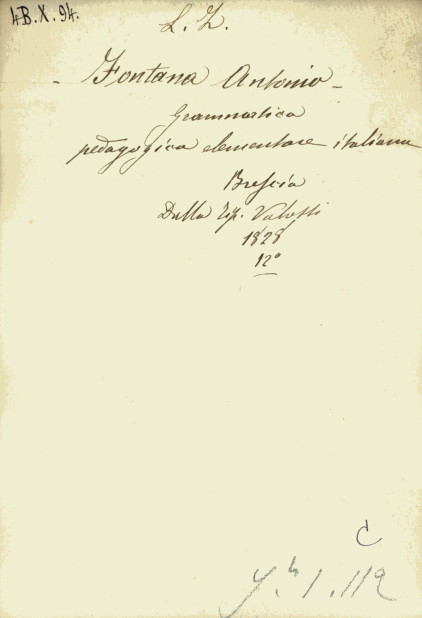 4B.X.94.
L. Z.
Fontana Antonio
Grammatica
pedagogica elementare italiana
Brescia
Dalla Tip. Valotti
1828
12º
C
1.112